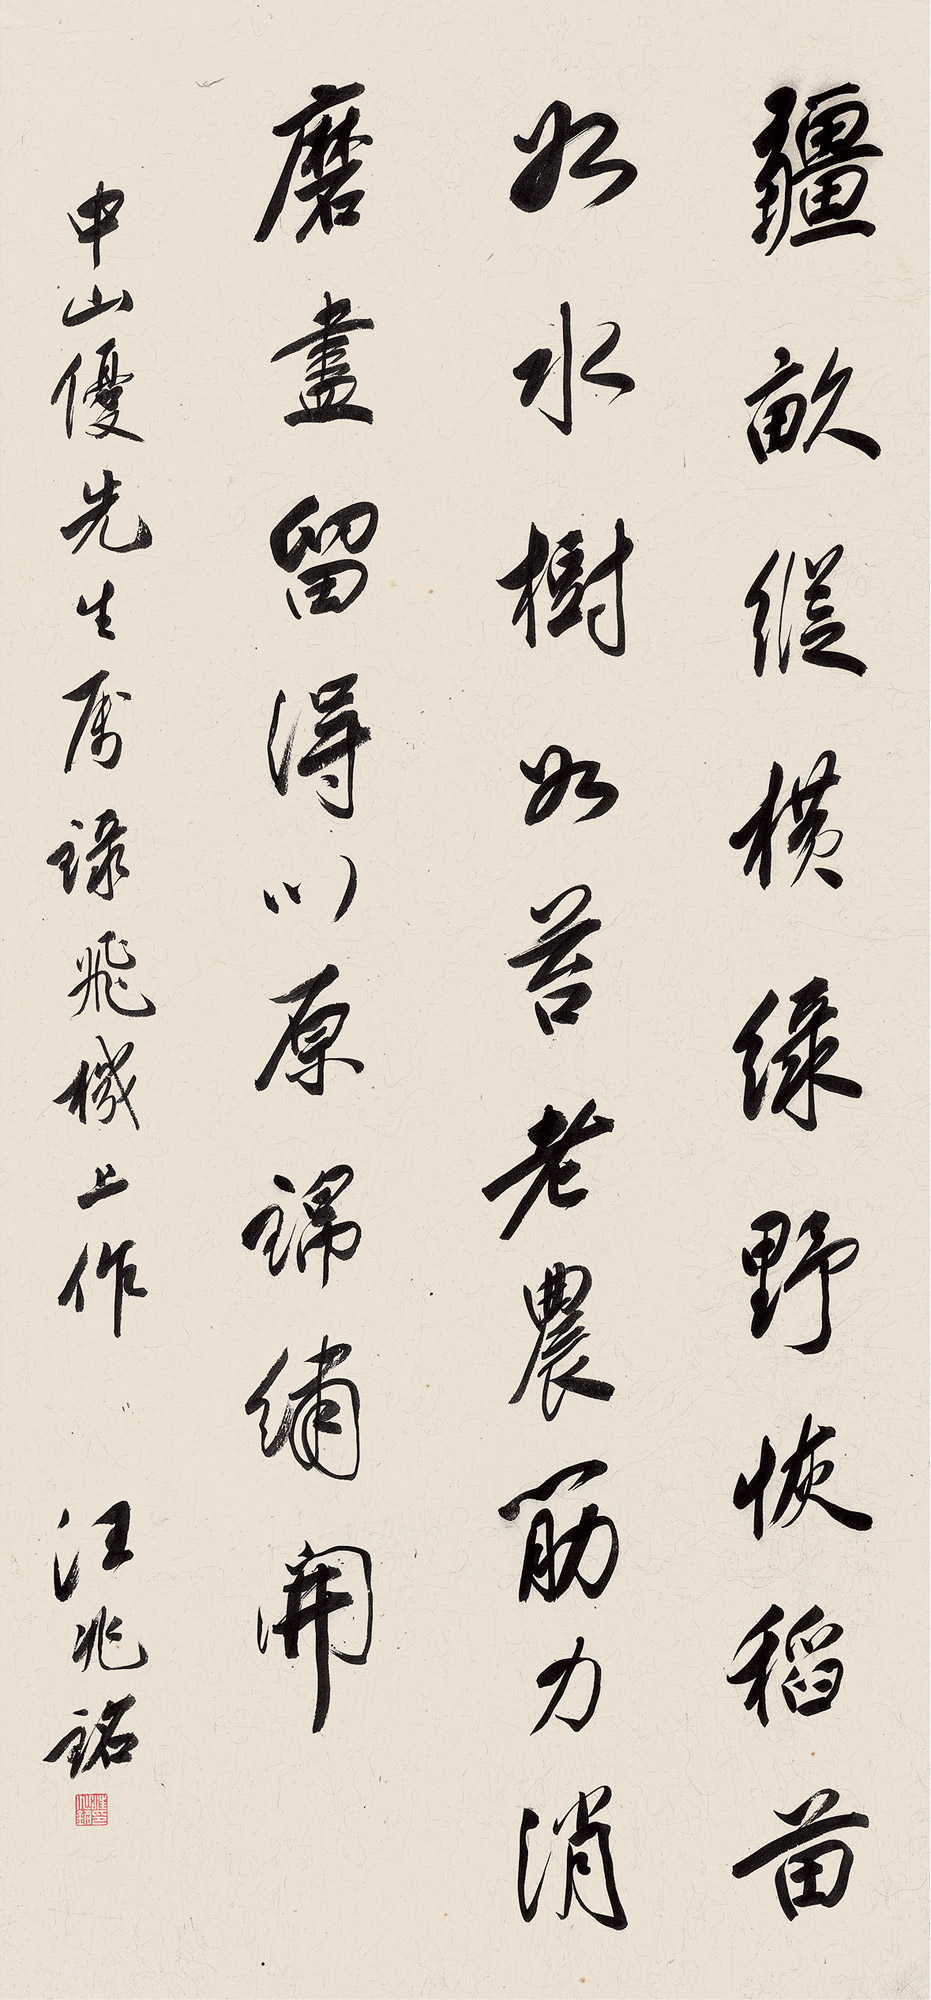 疆畝縱橫綠野恢稻苗
如水樹如苔老農筋力消
磨盡留得川原錦繡開
中山優先生属錄飛機上作
汪兆銘
汪兆銘印